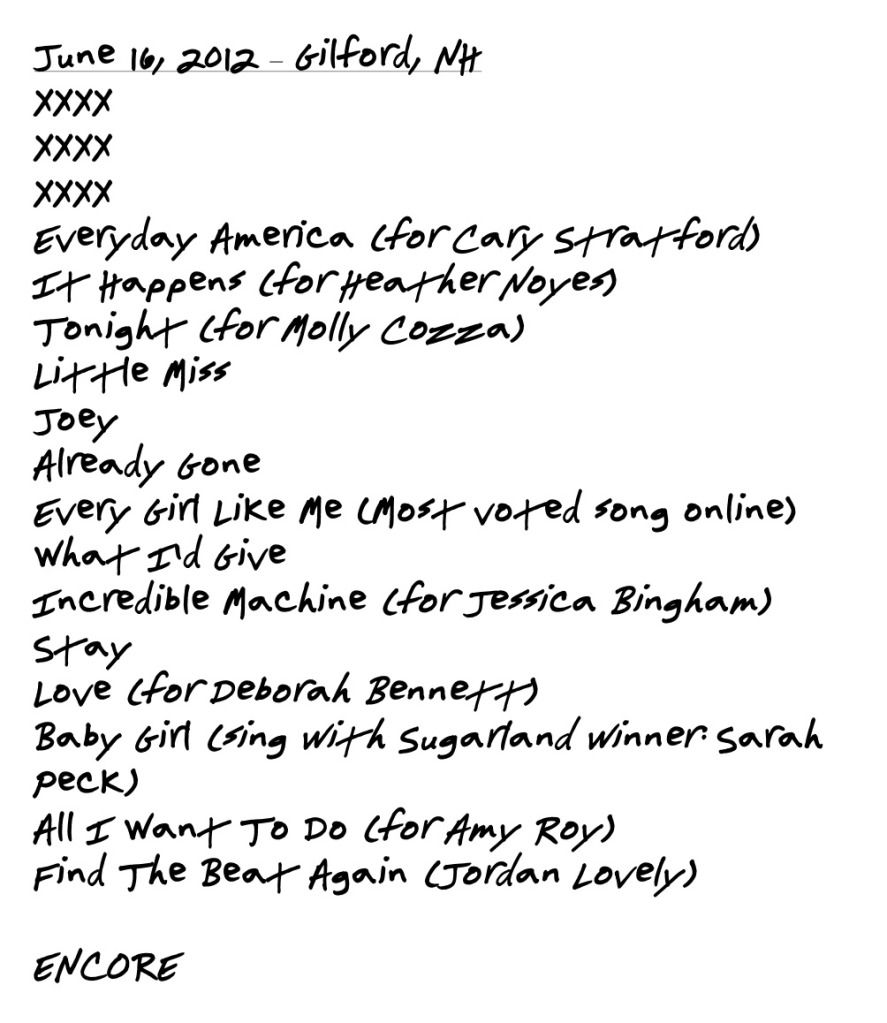 June 16, 2012 - Gilford, NH
XXXX
XXXX
XXXX
Everyday America (for Cary Stratford)
It Happens (for Heather Noyes)
Tonight (for Molly Cozza)
Little Miss
Joey
Already Gone
Every Girl Like Me (Most voted song online)
What I'd Give
Incredible Machine (for Jessica Bingham)
Stay
Love (for Deborah Bennett)
Baby Girl (sing with Sugarland winner: Sarah
Peck)
All I Want To Do (for Amy Roy)
Find The Beat Again (Jordan Lovely)
ENCORE